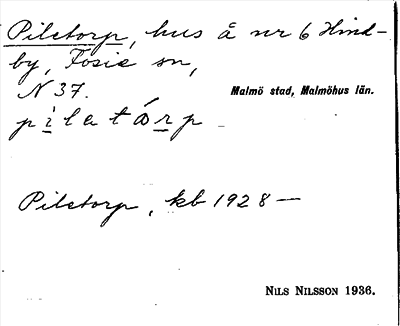 Piletorp, hus å nr 6 Hind-
by, Fosie sn,
N 37.
Malmö stad, Malmöhus län.
píletǻrp
Piletorp, kb 1928 —
NILS NILSSON 1936.